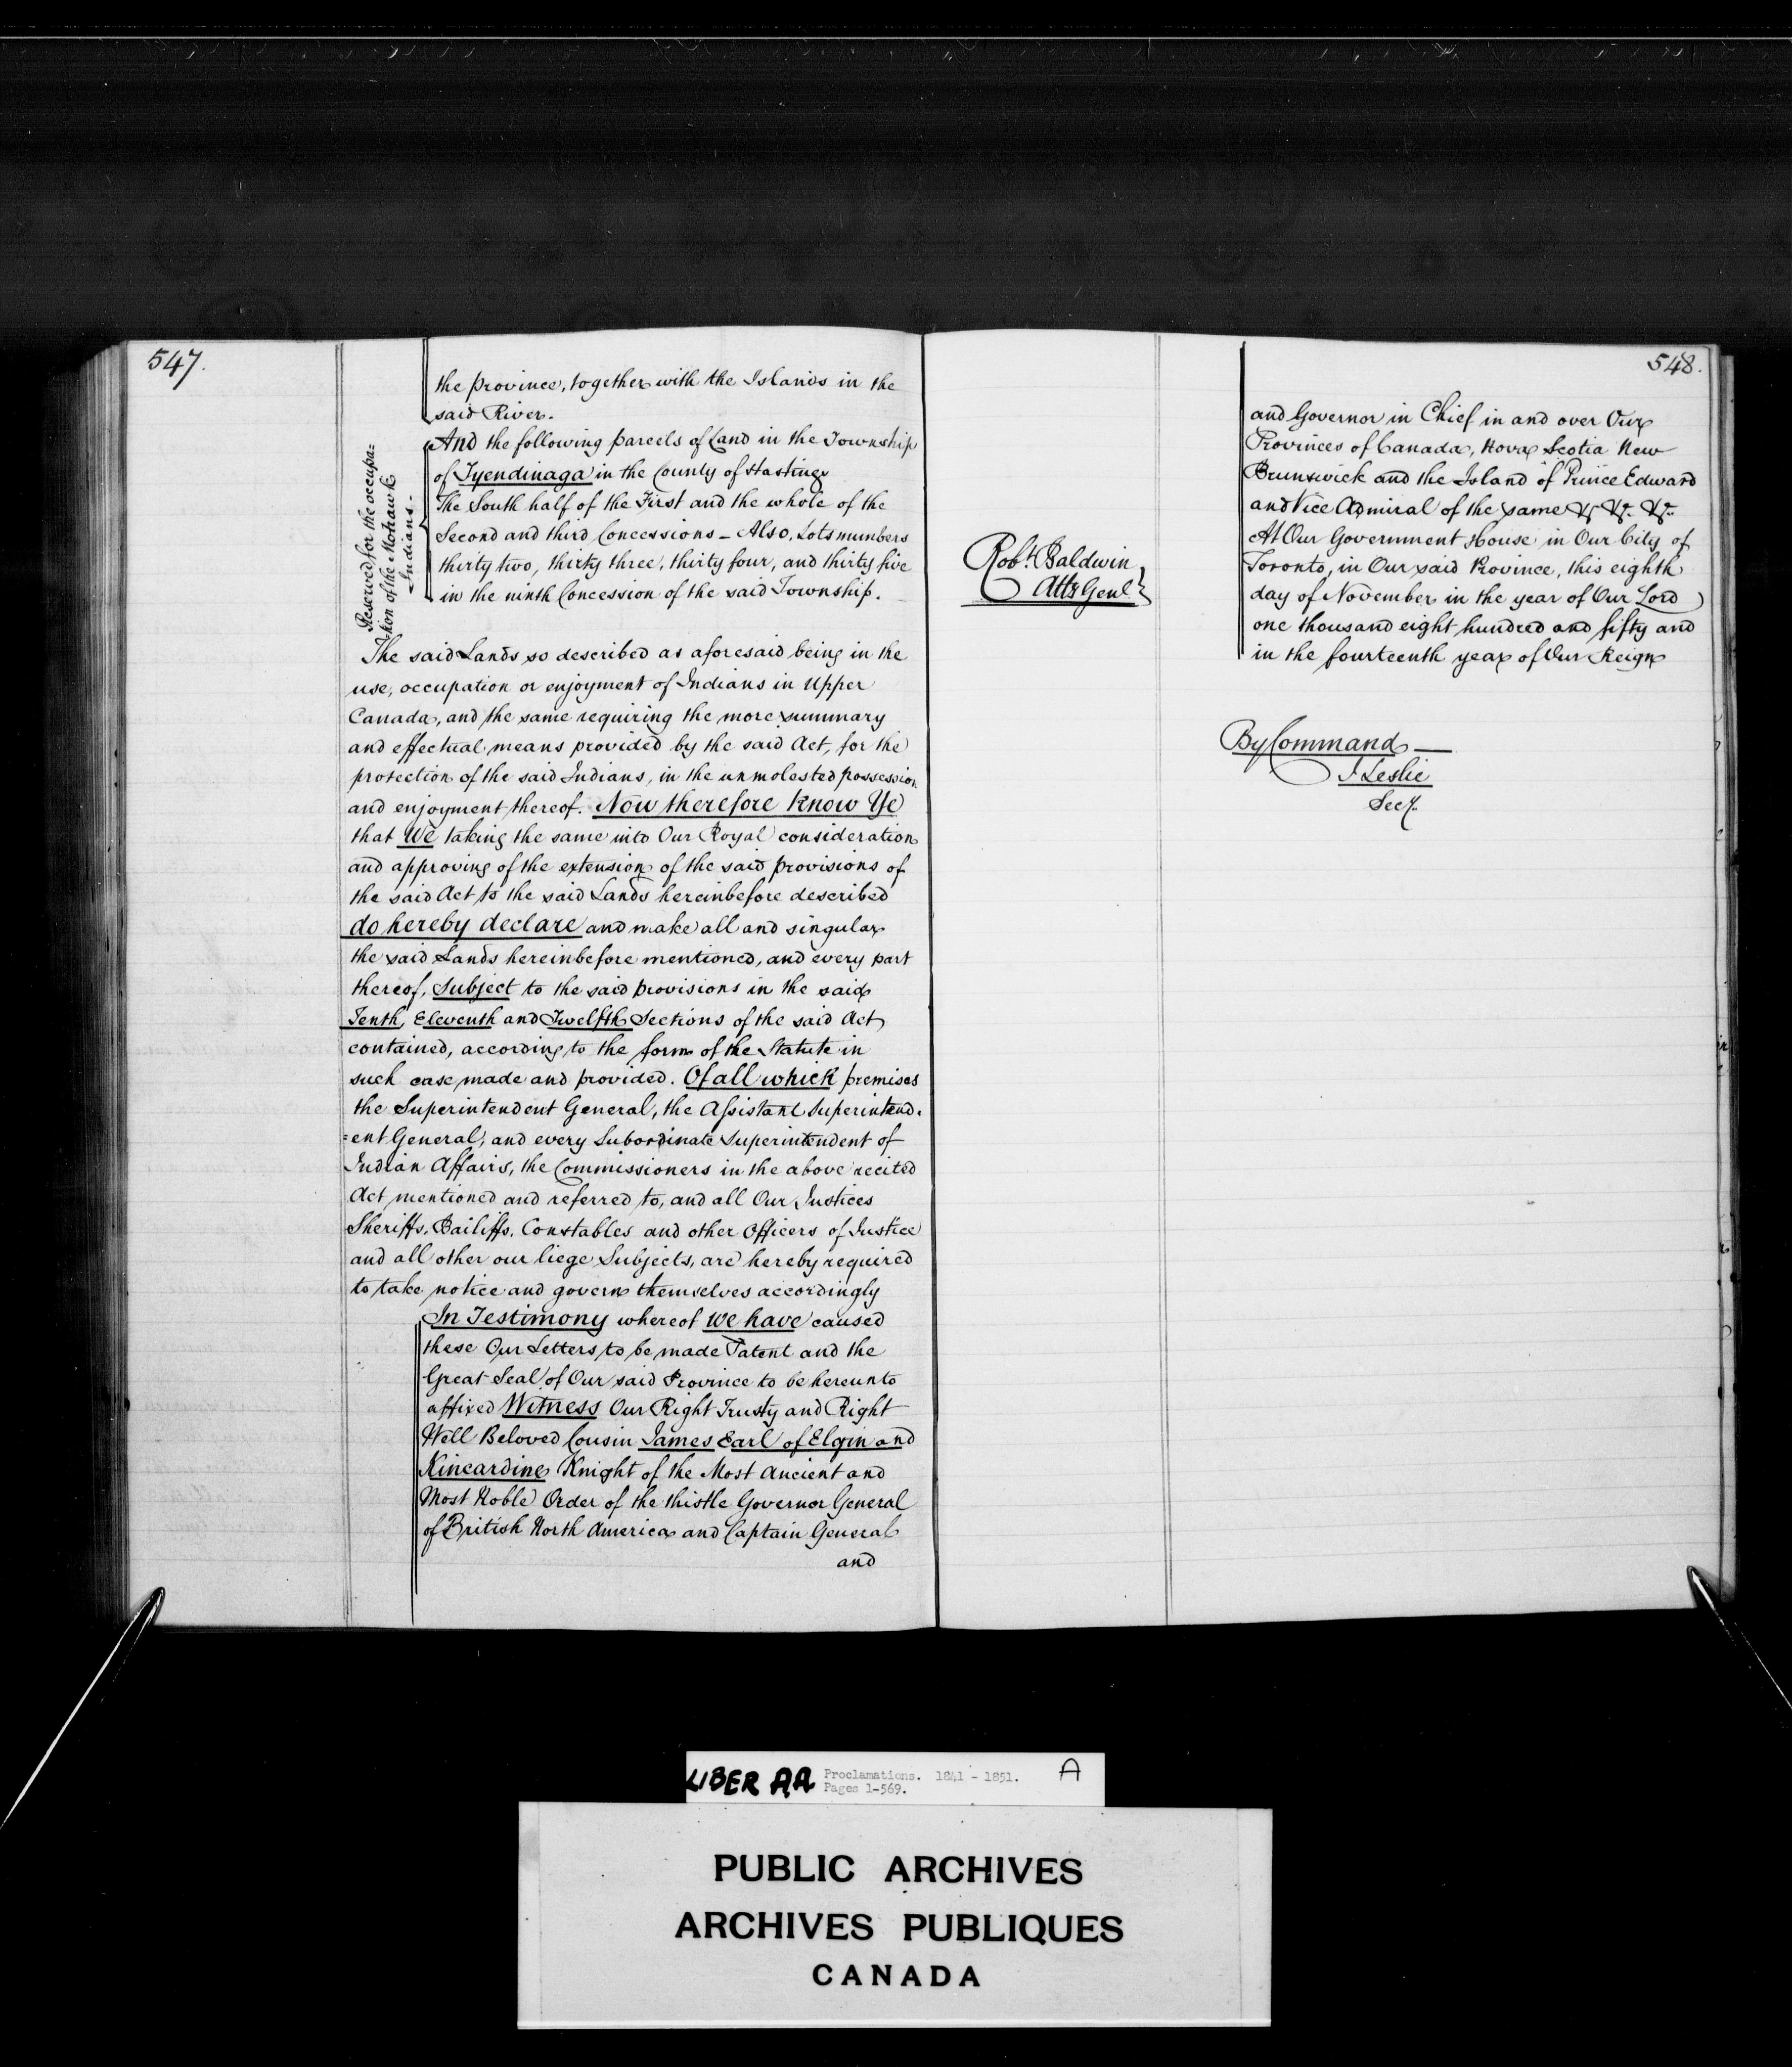 547.
the province, together with the Islands in the
said River.
Reserved for the occupa=
tion of the Mohawk
Indians.
And the following parcels of Land in the Township
of Tyendinaga in the County of Hastings
The South half of the First and the whole of the
Second and third Concessions – Also, Lots numbers
thirty two, thirty three, thirty four, and thirty five
in the ninth Concession of the said Township.
The said Lands so described as aforesaid being in the
use, occupation or enjoyment of Indians in Upper
Canada, and the same requiring the more summary
and effectual means provided by the said Act, for the
protection of the said Indians, in the unmolested possession
and enjoyment thereof. Now therefore Know Ye
that We taking the same into Our Royal consideration
and approving of the extension of the said provisions of
the said Act to the said Lands hereinbefore described
do hereby declare and make all and singular
the said Lands hereinbefore mentioned, and every part
thereof, Subject to the said provisions in the said
Tenth, Eleventh and Twelfth Sections of the said Act
contained, according to the form of the Statute in
such case made and provided. Of all which premises
the Superintendent General, the Assistant Superintend=
=ent General, and every Subordinate Superintendent of
Indian Affairs, the Commissioners in the above recited
Act mentioned and referred to, and all Our Justices
Sheriffs, Bailiffs, Constables and other Officers of Justice
and all other our liege Subjects, are hereby required
to take notice and govern themselves accordingly
In Testimony whereof We have caused
these Our Letters to be made Patent and the
Great Seal of Our said Province to be hereunto
affixed Witness Our Right Trusty and Right
Well Beloved Cousin James Earl of Elgin and
Kincardine Knight of the Most Ancient and
Most Noble Order of the thistle Governor General
of British North America and Captain General
and
548.
and Governor in Chief in and over Our
Provinces of Canada, Nova Scotia New
Brunswick and the Island of Prince Edward
and Vice Admiral of the same &c &c. &c.
At Our Government House in Our City of
Toronto, in Our said Province, this eighth
day of November in the year of Our Lord
one thousand eight hundred and fifty and
in the fourteenth year of Our Reign
Robt. Baldwin
Atty Genl.
By Command –
J Leslie
Secy.
LIBER AA Proclamations. 1841 - 1851. A
Pages 1-569.
PUBLIC ARCHIVES
ARCHIVES PUBLIQUES
CANADA